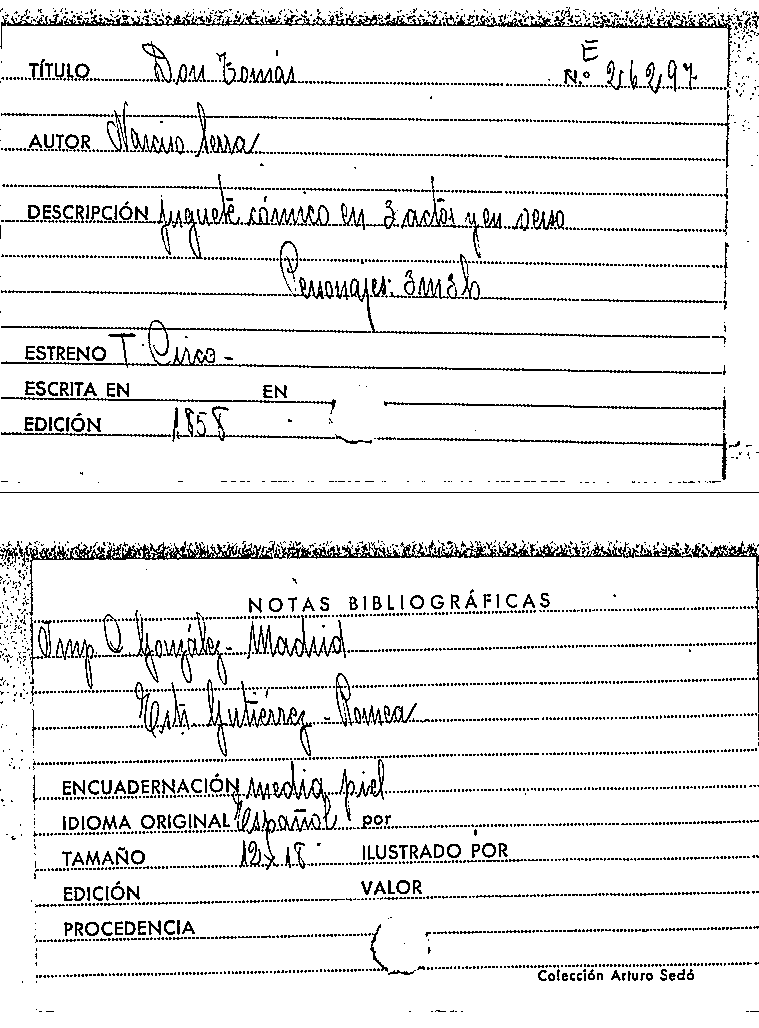 E
TÍTULO Don Tomás N.º 26297
AUTOR Narciso Serra
DESCRIPCIÓN juguete cómico en 3 actos y en verso
Personajes: 3m3h
ESTRENO T. Circo -
ESCRITA EN EN
EDICIÓN 1858
NOTAS BIBLIOGRÁFICAS
Imp C González - Madrid
Estr Gutiérrez - Romea
ENCUADERNACIÓN media piel
IDIOMA ORIGINAL Español por
TAMAÑO 12x18 ILUSTRADO POR
EDICIÓN VALOR
PROCEDENCIA
Colección Arturo Sedó